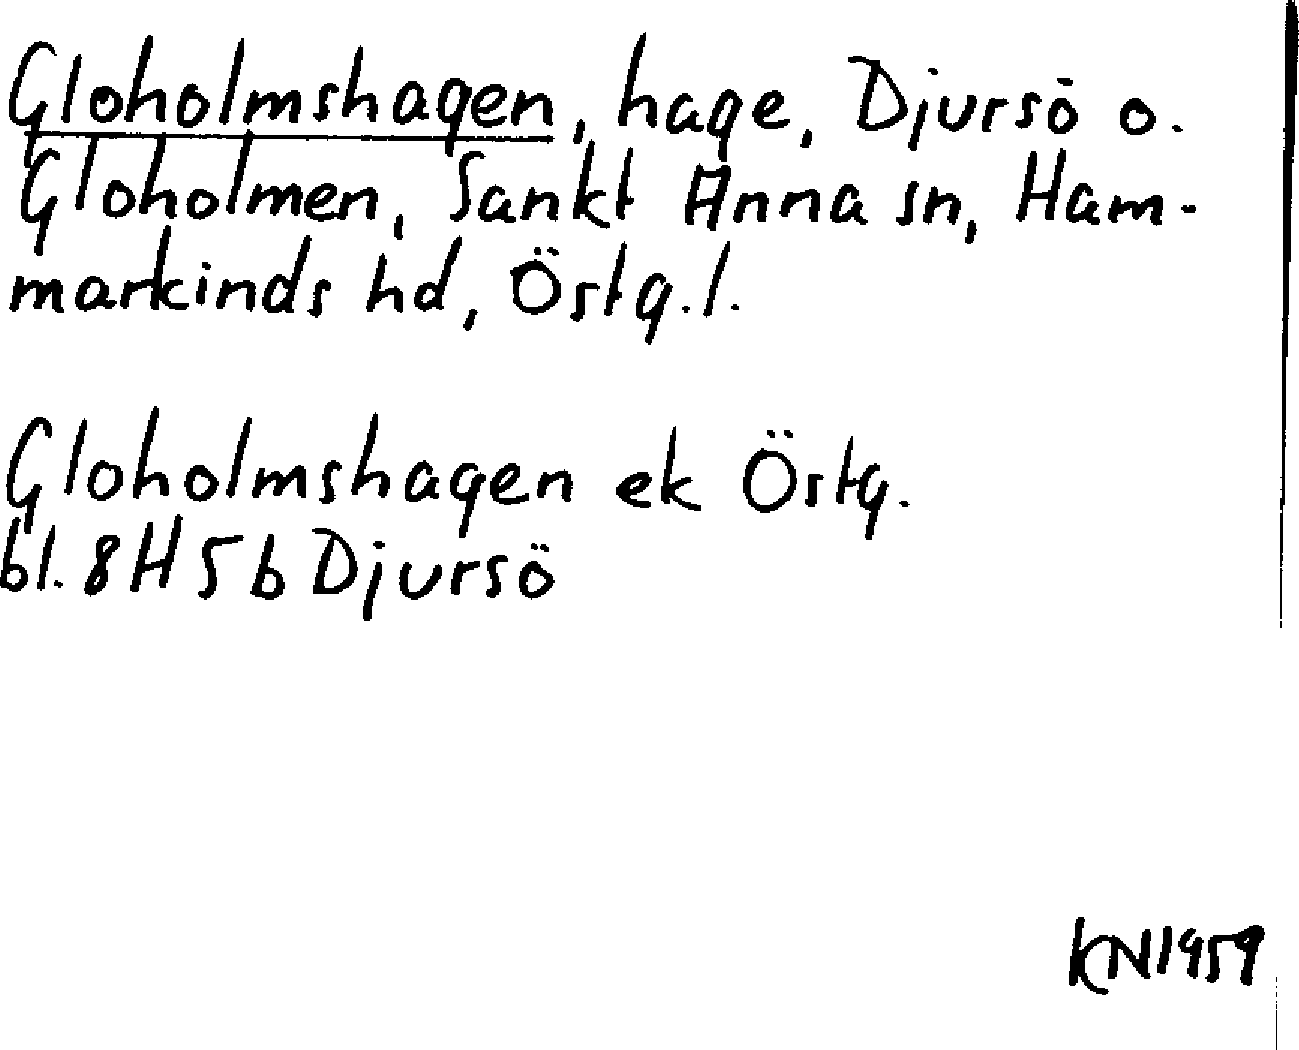 Gloholmshagen, hage, Djursö o.
Gloholmen, Sankt Anna sn, Ham-
markinds hd, Östg.l.
Gloholmshagen ek Östg.
bl. 8H 5b Djursö
KN1959